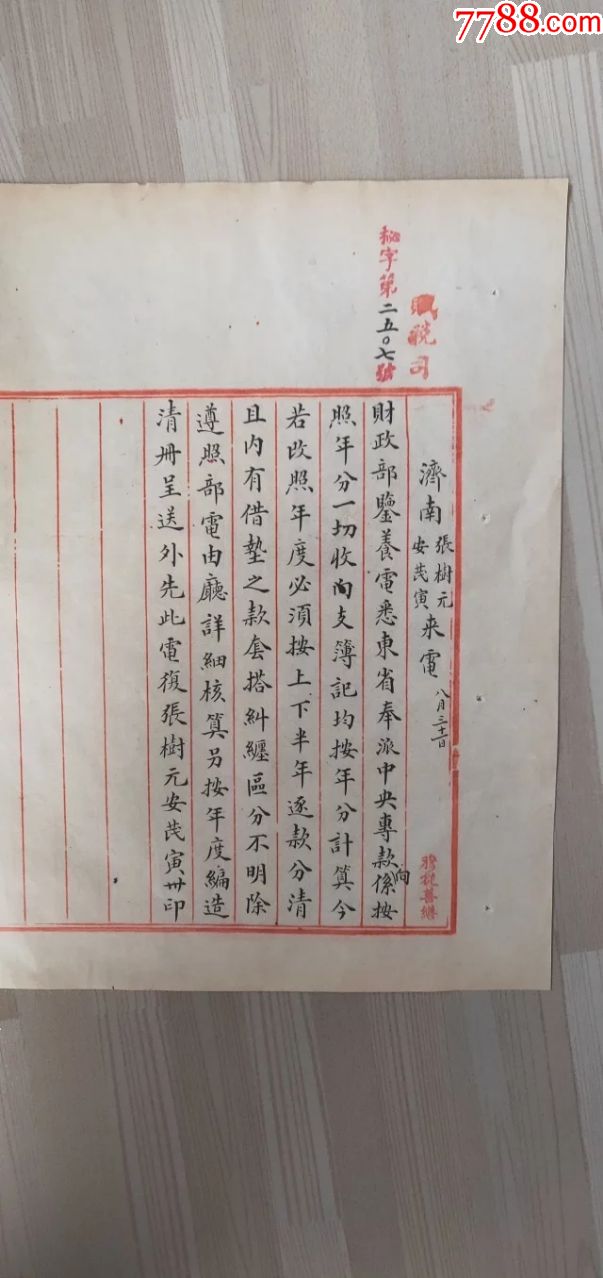 7788.com
賦稅司
秘字第二五〇七號
濟南張樹元安茂寅来電 八月三十一日
財政部鑒養電悉東省奉派中央專款向係按
照年分一切收支簿記均按年分計算今
若改照年度必須按上下半年逐款分清
且内有借墊之款套搭糾纏區分不明除
遵照部電由廳詳細核算另按年度編造
清冊呈送外先此電復張樹元安茂寅卅印